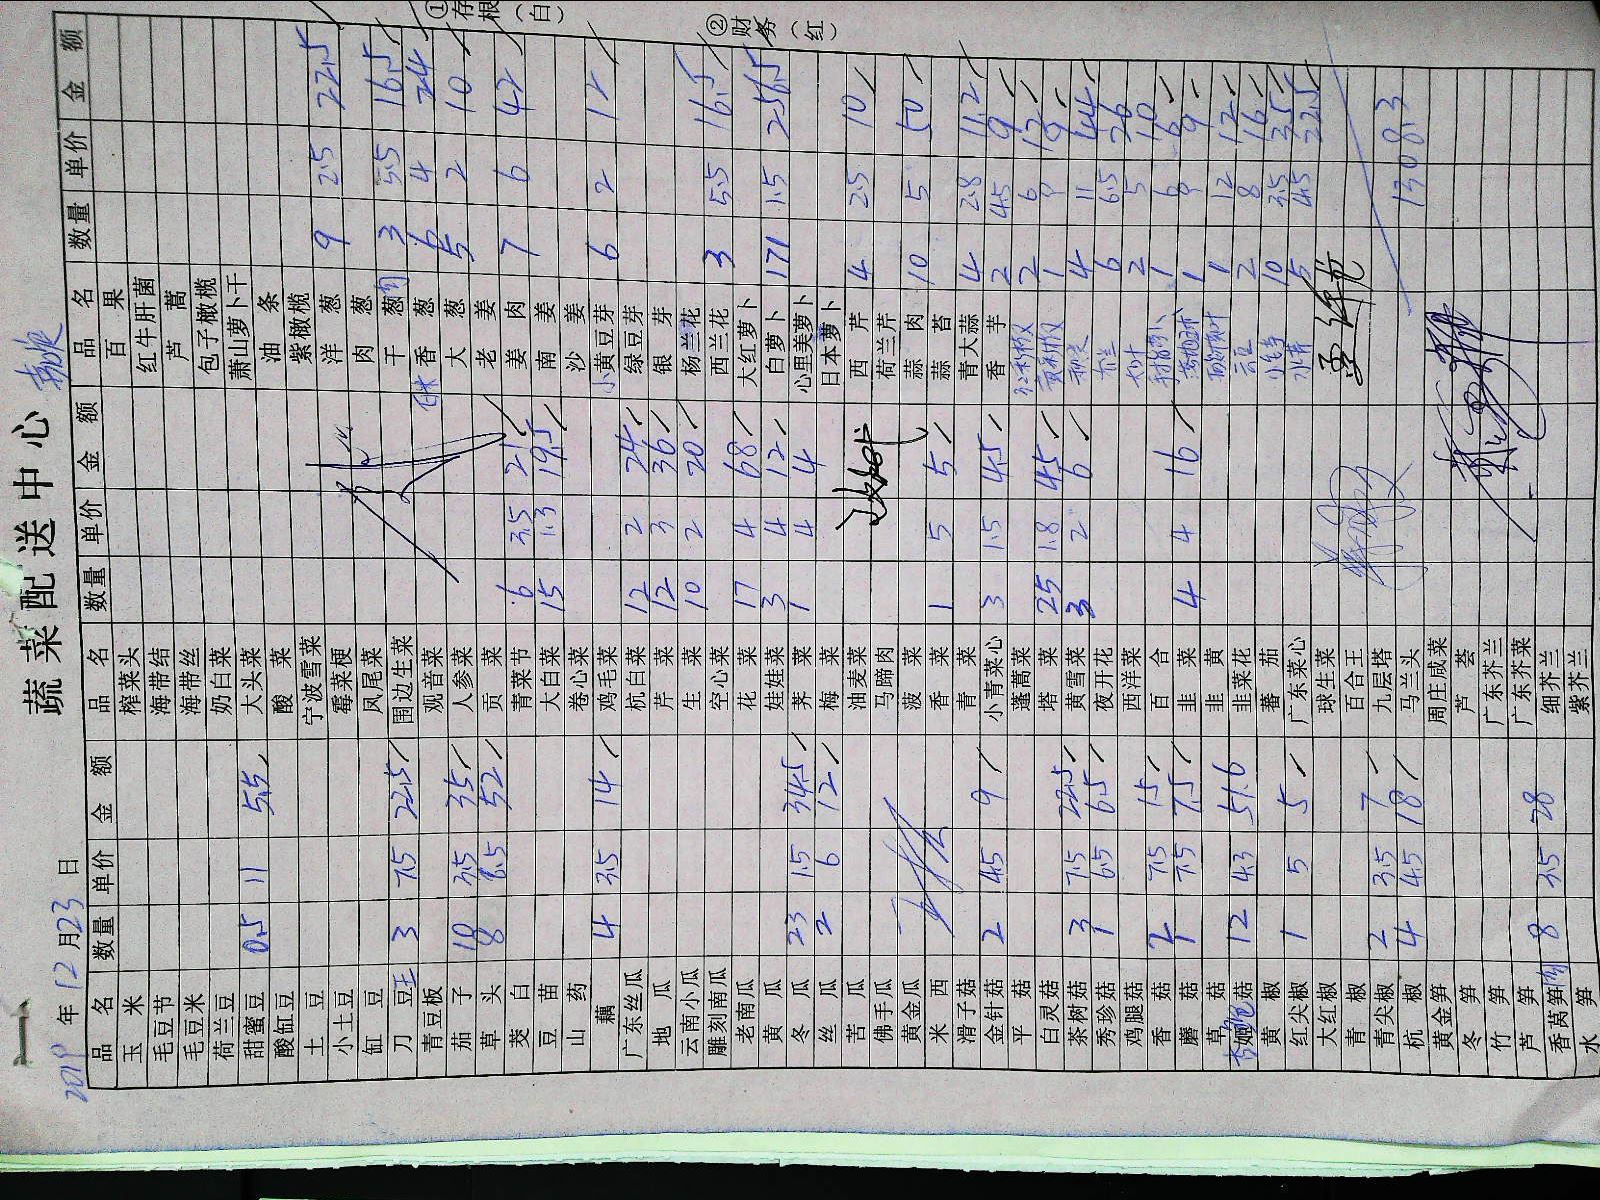 蔬菜配送中心
2019年12月23日
①存根（白）
②财务（红）
品名 数量 单价 金额 品名 数量 单价 金额 品名 数量 单价 金额
玉米 榨菜头 百果
毛豆节 海带结 红牛肝菌
毛豆米 海带丝 芦蒿
荷兰豆 奶白菜 包子橄榄
甜蜜豆 0.5 11 5.5 大头菜 萧山萝卜干
酸缸豆 酸菜 油条
土豆 宁波雪菜 紫橄榄
小土豆 霉菜梗 洋葱 9 2.5 22.5
缸豆 凤尾菜 肉葱
刀豆 3 7.5 22.5 围边生菜 干葱肉 3 5.5 16.5
青豆板 观音菜 香葱 6 4 24
茄子 10 3.5 35 人参菜 大葱 5 2 10
草头 8 6.5 52 贡菜 老姜
茭白 青菜节 6 3.5 21 姜肉 7 6 42
豆苗 大白菜 15 1.3 19.5 南姜
山药 卷心菜 沙姜
藕 4 3.5 14 鸡毛菜 小黄豆芽 6 2 12
广东丝瓜 杭白菜 12 2 24 绿豆芽
地瓜 芹菜 12 3 36 银芽
云南小瓜 生菜 10 2 20 杨兰花
雕刻南瓜 空心菜 西兰花 3 5.5 16.5
老南瓜 花菜 17 4 68 大红萝卜
黄瓜 娃娃菜 3 4 12 白萝卜 171 1.5 256.5
冬瓜 23 1.5 34.5 荠菜 1 4 4 心里美萝卜
丝瓜 2 6 12 梅菜 日本萝卜
苦瓜 油麦菜 西芹 4 2.5 10
佛手瓜 马蹄肉 荷兰芹
黄金瓜 菠菜 蒜肉 10 5 50
米西 香菜 1 5 5 蒜苔
滑子菇 青菜 青大蒜 4 2.8 11.2
金针菇 2 4.5 9 小青菜心 3 1.5 4.5 香芋 2 4.5 9
平菇 蓬蒿菜 2 6 12
白灵菇 塔菜 25 1.8 45 1 9 9
茶树菇 3 7.5 22.5 黄雪菜 3 2 6 4 11 44
秀珍菇 1 6.5 6.5 夜开花 6 6.5 26
鸡腿菇 西洋菜 2 5 10
香菇 2 7.5 15 百合 1 6 6
蘑菇 1 7.5 7.5 韭菜 4 4 16 1 9 9
草菇 韭黄 1 12 12
姬菇 12 4.3 51.6 韭菜花 2 8 16
黄椒 蕃茄 10 3.5 35
红尖椒 1 5 5 广东菜心 5 4.5 22.5
大红椒 球生菜
青椒 百合王
青尖椒 2 3.5 7 九层塔
杭椒 4 4.5 18 马兰头 1308.3
黄金笋 周庄咸菜
冬笋 芦荟
竹笋 广东芥兰
芦笋 广东芥菜
香莴笋肉 8 3.5 28 细芥兰
水笋 紫芥兰